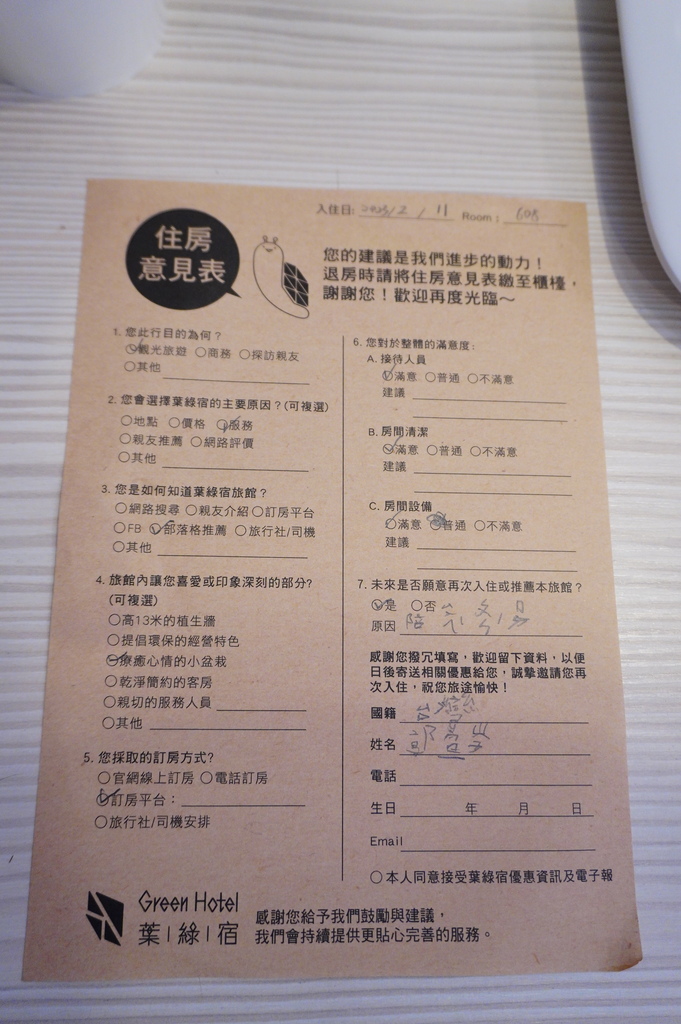 住房
意見表
入住日: 2023/2/11 Room: 608
您的建議是我們進步的動力！
退房時請將住房意見表繳至櫃檯，
謝謝您！歡迎再度光臨～
1. 您此行目的為何？
○觀光旅遊 ○商務 ○探訪親友
○其他
2. 您會選擇葉綠宿的主要原因？(可複選)
○地點 ○價格 ○服務
○親友推薦 ○網路評價
○其他
3. 您是如何知道葉綠宿旅館？
○網路搜尋 ○親友介紹 ○訂房平台
○FB ○部落格推薦 ○旅行社/司機
○其他
4. 旅館內讓您喜愛或印象深刻的部分?
(可複選)
○高13米的植生牆
○提倡環保的經營特色
○療癒心情的小盆栽
○乾淨簡約的客房
○親切的服務人員
○其他
5. 您採取的訂房方式?
○官網線上訂房 ○電話訂房
○訂房平台：
○旅行社/司機安排
6. 您對於整體的滿意度:
A. 接待人員
○滿意 ○普通 ○不滿意
建議
B. 房間清潔
○滿意 ○普通 ○不滿意
建議
C. 房間設備
○滿意 ○普通 ○不滿意
建議
7. 未來是否願意再次入住或推薦本旅館？
○是 ○否
原因
感謝您撥冗填寫，歡迎留下資料，以便
日後寄送相關優惠給您，誠摯邀請您再
次入住，祝您旅途愉快！
國籍
姓名
電話
生日 年 月 日
Email
○本人同意接受葉綠宿優惠資訊及電子報
Green Hotel
葉|綠|宿
感謝您給予我們鼓勵與建議，
我們會持續提供更貼心完善的服務。